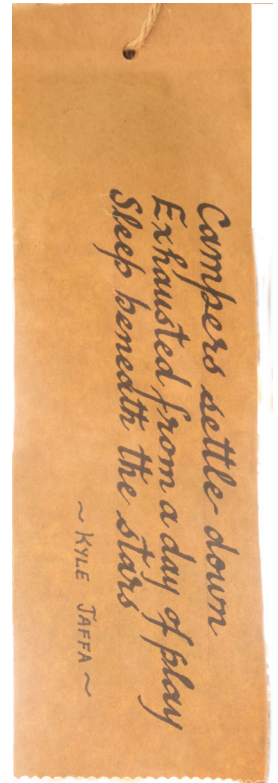 Campers settle down
Exhausted from a day of play
Sleep beneath the stars
~ KYLE JAFFA ~